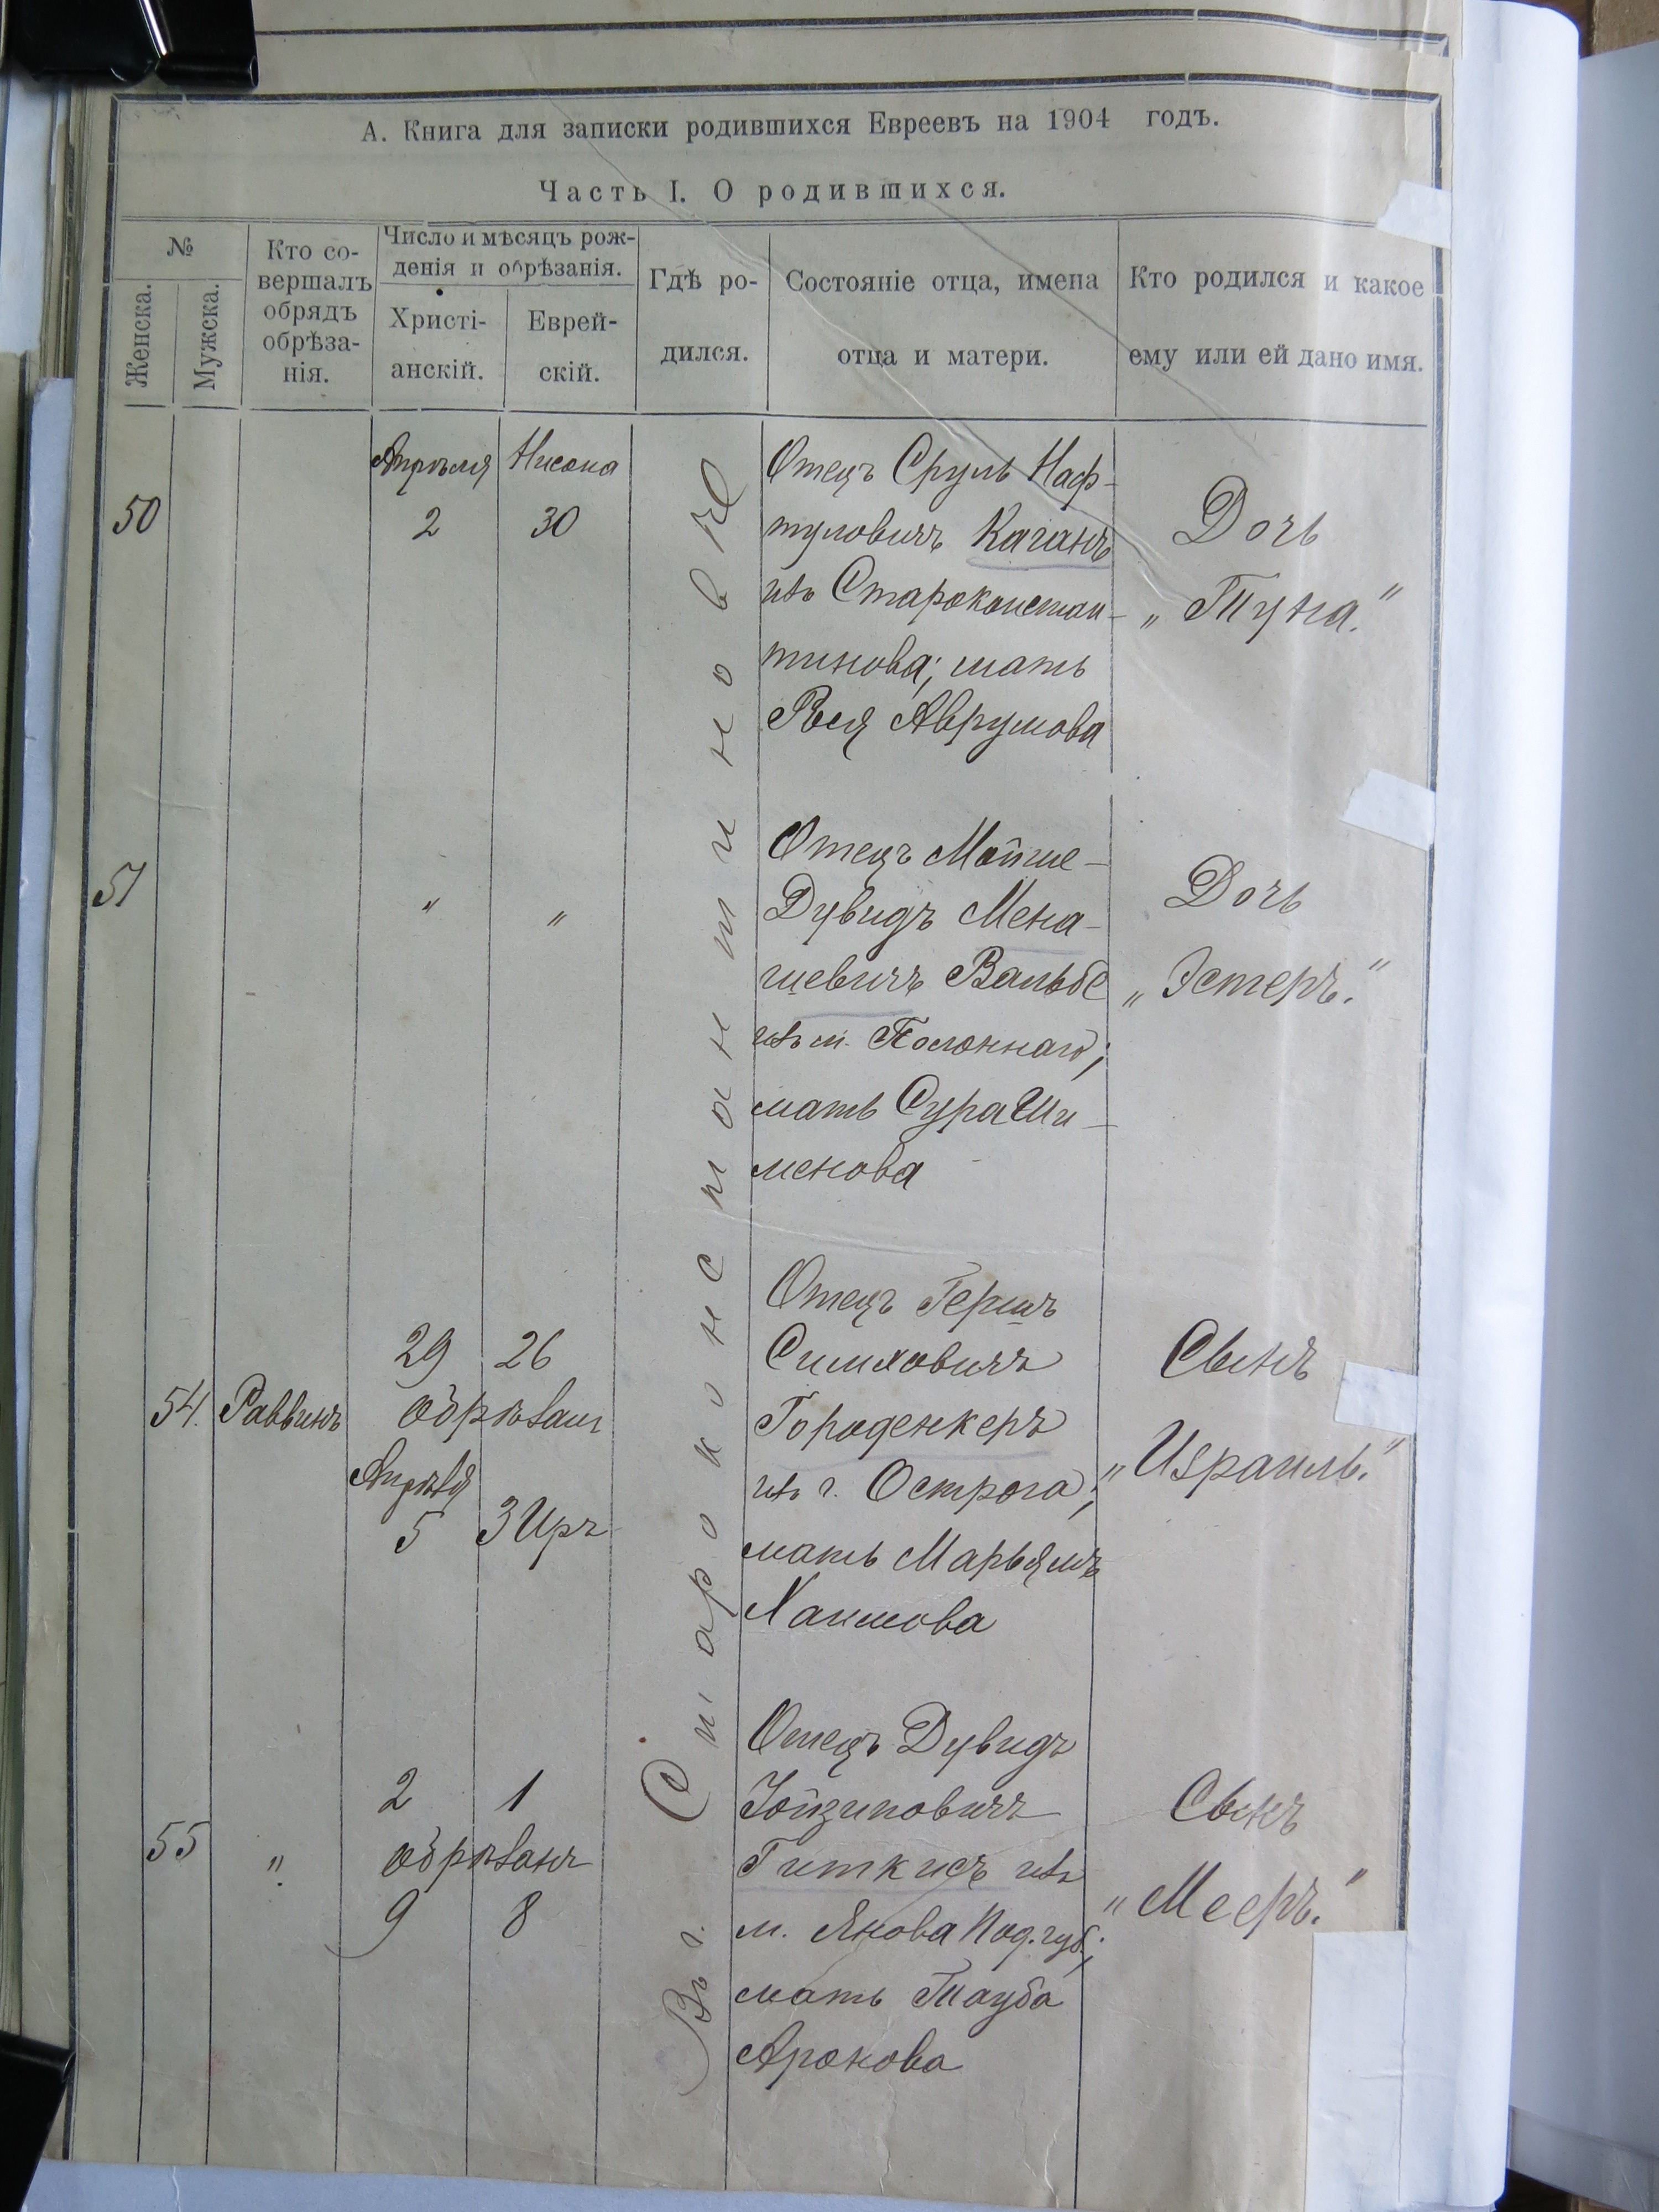 А. Книга для записки родившихся Евреевъ на 1904 годъ.
Часть I. О родившихся.
№
Женска.
Мужска.
Кто со-
вершалъ
обрядъ
обрѣза-
нія.
Число и мѣсяцъ рож-
денія и обрѣзанія.
Христі-
анскій.
Еврей-
скій.
Гдѣ ро-
дился.
Состояніе отца, имена
отца и матери.
Кто родился и какое
ему или ей дано имя.
Въ г. Староконстантинов
50
Апрѣля
2
Нисона
30
Отецъ Сруль Наф-
туловичъ Каганъ
изъ Староконстан-
тинова; мать
Рося Аврумова
Дочь
„Туна."
51
"
"
Отецъ Мойше-
Дувидъ Мена-
шевичъ Вальбе
изъ м. Полоннаго;
мать Сура Ши-
менова
Дочь
„Эстеръ."
54. Раввинъ
29 26
обрѣзан
Апрѣля
5 3 Иръ
Отецъ Гершъ
Симховичъ
Городенкеръ
изъ г. Острога;
мать Марьямъ
Хаимова
Сынъ
„Израиль."
55 "
2 1
обрѣзанъ
9 8
Отецъ Дувидъ
Іойзиповичъ
Гиткисъ изъ
м. Янова Под. губ.;
мать Тауба
Аронова
Сынъ
„Мееръ."